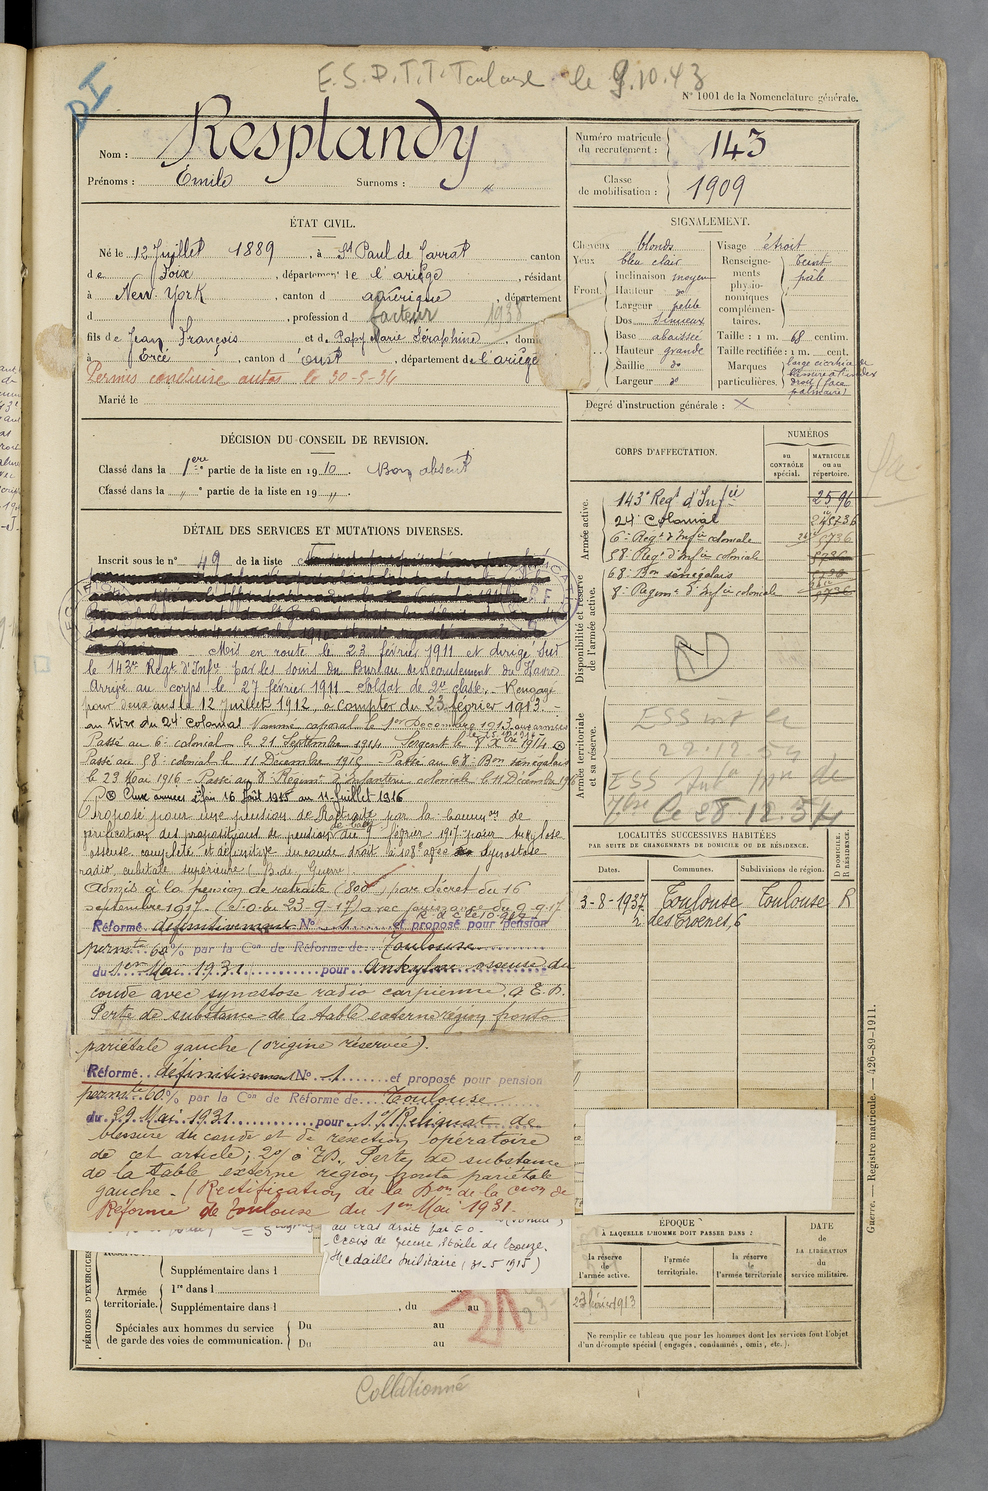 E.S.P.T.T. Toulouse le 9.10.43
N° 1001 de la Nomenclature générale.
Nom : Resplandy
Prénoms : Emile Surnoms : "
Numéro matricule du recrutement : 143
Classe de mobilisation : 1909
ÉTAT CIVIL.
Né le 12 Juillet 1889, à St Paul de Jarrat canton
de Foix, département de l'ariège, résidant
à New York, canton d amérique, département
d , profession de facteur 1938
fils de Jean François et de Papy Marie Séraphine, domi
à Ercé, canton d'oust, département de l'ariège
Permis conduire autos le 30-5-34
Marié le
SIGNALEMENT.
Cheveux blonds
Yeux bleu clair
Front. inclinaison moyen
Hauteur do
Largeur petite
Dos sinueux
Base abaissée
Hauteur grande
Saillie do
Largeur do
Visage étroit
Renseignements physionomiques complémentaires. teint pâle
Taille : 1 m. 68 centim.
Taille rectifiée : 1 m. cent.
Marques particulières.
Degré d'instruction générale : X
DÉCISION DU CONSEIL DE REVISION.
Classé dans la 1ère partie de la liste en 1910. Bon absent
Classé dans la " partie de la liste en 19 ".
DÉTAIL DES SERVICES ET MUTATIONS DIVERSES.
Inscrit sous le n° 49 de la liste
Mis en route le 23 février 1911 et dirigé sur
le 143e Régt d'Infie par les soins du Bureau de recrutement du Havre
Arrivé au corps le 27 février 1911 – soldat de 2e classe. – Rengagé
pour deux ans le 12 Juillet 1912, à compter du 23 février 1913. –
au titre du 24e Colonial Nommé caporal le 1er Décembre 1913 aux armées
Passé au 6e colonial le 21 Septembre 1914 Sergent le 8 Xbre 1914
Passé au 58e colonial le 11 Décembre 1915 – Passé au 68e Bon sénégalais
le 23 Mai 1916 – Passé au 8e Régiment d'Infanterie coloniale le 11 Décembre 1916
Aux armées du 16 Août 1915 au 11 Juillet 1916
Proposé pour une pension de Retraite par la common de
vérification des propositions de pension du 9 février 1917 pour Ankylose
osseuse complète et définitive du coude droit à 108° avec synostose
radio cubitale supérieure (B. de Guerre)
Admis à la pension de retraite (800) par décret du 16
septembre 1917. (J.O. du 23-9-17) avec jouissance du 9-9-17
Réformé définitivement N° 1 et proposé pour pension
permte 60 % par la Con de Réforme de Toulouse
du 1er Mai 1931 pour ankylose osseuse du
coude avec synostose radio carpienne. à E.D.
Perte de substance de la table externe région fronto
pariétale gauche (origine réservée).
Réformé définitivement N° 1 et proposé pour pension
permte 60 % par la Con de Réforme de Toulouse
du 29 Mai 1931 pour 1°/ Reliquat de
blessure du coude et de résection opératoire
de cet article; 2°/ Perte de substance
de la table externe région fronto pariétale
gauche – (Rectification de la Don de la Cion de
Réforme de Toulouse du 1er Mai 1931.
au bras droit
Croix de guerre étoile de bronze.
Médaille militaire (31-5 1915)
PÉRIODES D'EXERCICES
Supplémentaire dans l
Armée territoriale. 1re dans l
Supplémentaire dans l , du au
Spéciales aux hommes du service de garde des voies de communication. Du au
Du au
21
Collationné
CORPS D'AFFECTATION.
NUMÉROS
au CONTRÔLE spécial.
MATRICULE ou au répertoire.
Armée active.
143e Régt d'Infie 2596
24e Colonial
6e Régt d'Infie coloniale
58e Regt d'Infie coloniale
68e Bon sénégalais
8e Régimt d'Infie coloniale
Disponibilité et réserve de l'armée active.
Armée territoriale et sa réserve.
le 28.12.54
LOCALITÉS SUCCESSIVES HABITÉES
PAR SUITE DE CHANGEMENTS DE DOMICILE OU DE RÉSIDENCE.
Dates. Communes. Subdivisions de région. D DOMICILE. R RÉSIDENCE.
3-8-1937 Toulouse Toulouse R
r. des Troenes, 6
ÉPOQUE
À LAQUELLE L'HOMME DOIT PASSER DANS :
la réserve de l'armée active.
l'armée territoriale.
la réserve de l'armée territoriale
DATE DE LA LIBÉRATION du service militaire.
23 février 1913
Ne remplir ce tableau que pour les hommes dont les services font l'objet
d'un décompte spécial (engagés, condamnés, omis, etc.).
Guerre. — Registre matricule. — 426-89-1911.